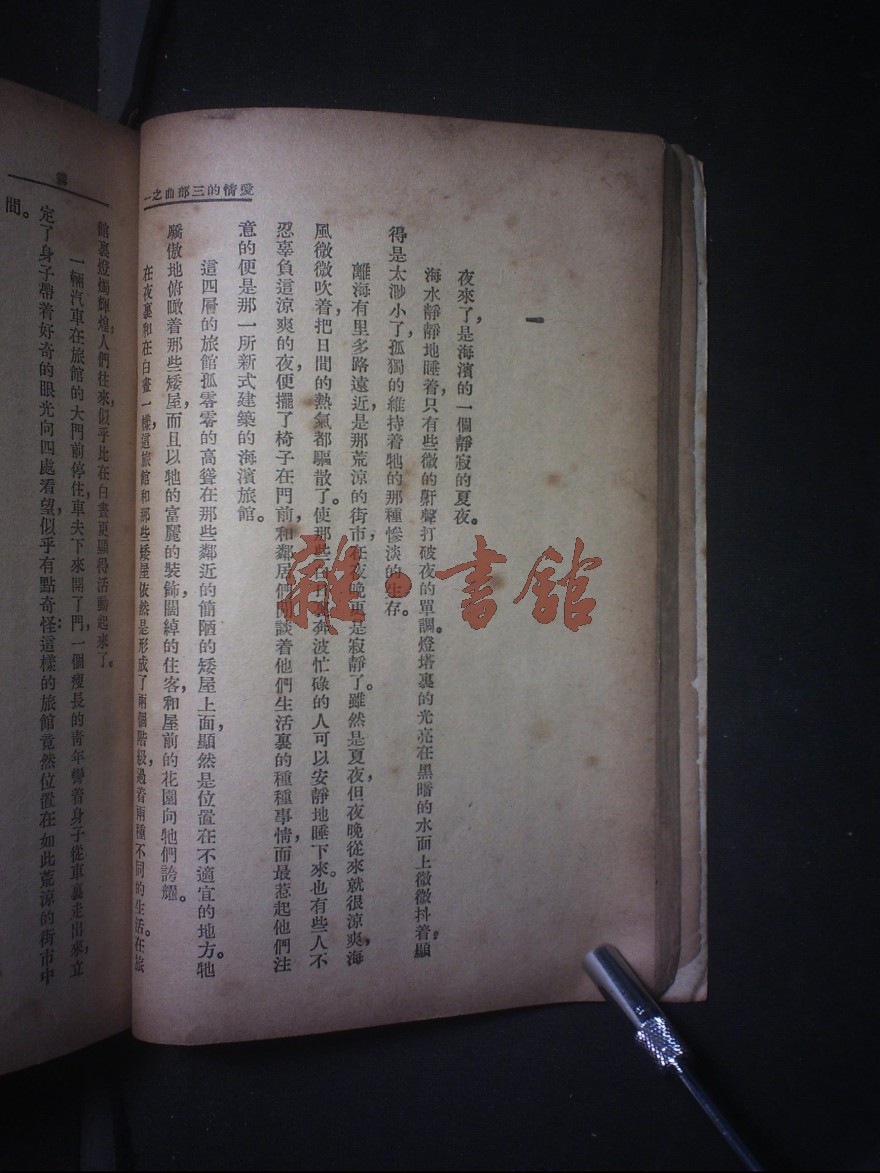 愛情的三部曲之一
一
夜來了，是海濱的一個靜寂的夏夜。
海水靜靜地睡着，只有些微的鼾聲打破夜的單調。燈塔裏的光亮在黑暗的水面上微微抖着，顯
得是太渺小了，孤獨的維持着牠的那種慘淡的生存。
離海有里多路遠近，是那荒涼的街市，在夜晚更是寂靜了。雖然是夏夜，但夜晚從來就很涼爽，海
風微微吹着，把日間的熱氣都驅散了。使那些白日裏奔波忙碌的人可以安靜地睡下來。也有些人不
忍辜負這涼爽的夜，便擺了椅子在門前，和鄰居們閒談着他們生活裏的種種事情，而最惹起他們注
意的便是那一所新式建築的海濱旅館。
這四層的旅館孤零零的高聳在那些鄰近的簡陋的矮屋上面，顯然是位置在不適宜的地方。牠
驕傲地俯瞰着那些矮屋，而且以牠的富麗的裝飾，闊綽的住客，和屋前的花園向牠們誇耀。
在夜裏和在白晝一樣，這旅館和那些矮屋依然是形成了兩個階級，過着兩種不同的生活。在旅
館裏燈燭輝煌，人們往來，似乎比在白晝更顯得活動起來了。
一輛汽車在旅館的大門前停住，車夫下來開了門，一個瘦長的青年彎着身子從車裏走出來，立
定了身子帶着好奇的眼光向四處看望，似乎有點奇怪：這樣的旅館竟然位置在如此荒涼的街市中
間。
雜·書館